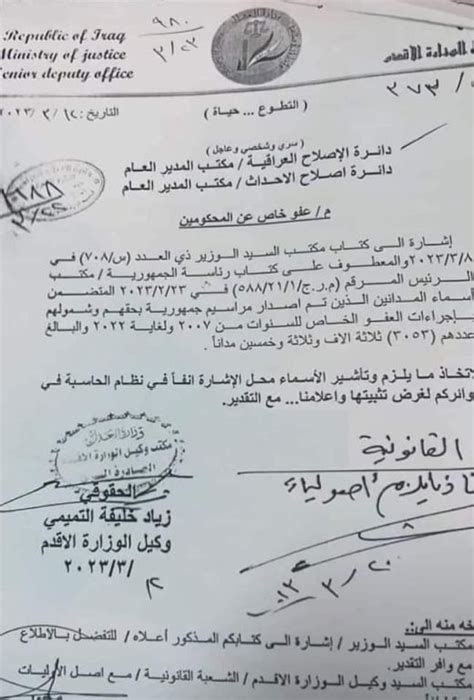 Republic of Iraq
Ministry of justice
Senior deputy office
الوزارة الاقدم
٩٨٠
٣/٢٢
٣٧٣/
التاريخ: ٢٠٢٣/٣/١٢
( التطوع ... حياة )
( سري وشخصي وعاجل )
دائرة الإصلاح العراقية / مكتب المدير العام
دائرة اصلاح الاحداث / مكتب المدير العام
م/ عفو خاص عن المحكومين
إشارة الى كتاب مكتب السيد الوزير ذي العدد (س/٧٠٨) في
٢٠٢٣/٣/٨ والمعطوف على كتاب رئاسة الجمهورية / مكتب
الرئيس المرقم (م.ر.ج/٥٨٨/٢١/١) في ٢٠٢٣/٢/٢٣ المتضمن
أسماء المدانين الذين تم اصدار مراسيم جمهورية بحقهم وشمولهم
بإجراءات العفو الخاص للسنوات من ٢٠٠٧ ولغاية ٢٠٢٢ والبالغ
عددهم (٣٠٥٣) ثلاثة الاف وثلاثة وخمسين مداناً .
لاتخاذ ما يلزم وتأشير الأسماء محل الإشارة انفاً في نظام الحاسبة في
وائركم لغرض تثبيتها واعلامنا... مع التقدير.
وزارة العدل
مكتب وكيل الوزارة الاقدم
الصادرة
القانونية
الحقوقي
زياد خليفة التميمي
وكيل الوزارة الاقدم
٢٠٢٣/٣/
٣/٢٠
خه منه الى:
مكتب السيد الوزير / إشارة الى كتابكم المذكور أعلاه / للتفضل بالاطلاع
مع وافر التقدير.
مكتب السيد وكيل الوزارة الاقدم / الشعبة القانونية / مع اصل الاوليات